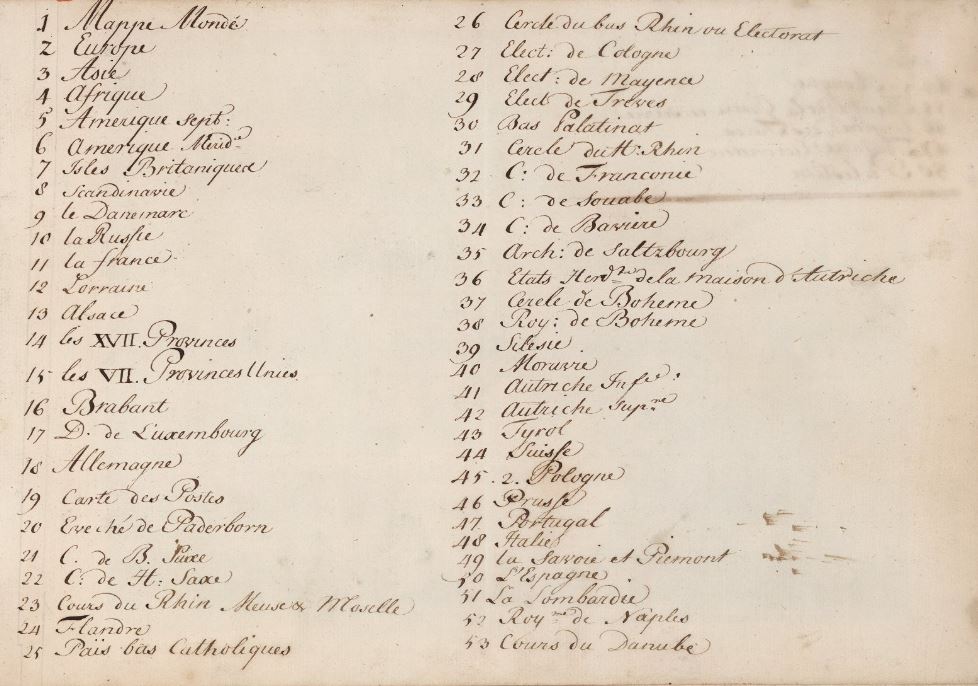 1 Mappe Monde
2 Europe
3 Asie
4 Afrique
5 Amerique Sept:
6 Amerique Merid.le
7 Isles Britaniques
8 Scandinavie
9 le Danemarc
10 la Russie
11 la france
12 Lorraine
13 Alsace
14 les XVII. Provinces
15 les VII. Provinces Unies
16 Brabant
17 D. de Luxembourg
18 Allemagne
19 Carte des Postes
20 Eveché de Paderborn
21 C. de B. Saxe
22 C. de H: Saxe
23 Cours du Rhin Meuse & Moselle
24 Flandre
25 Païs bas Catholiques
26 Cercle du bas Rhin ou Electorat
27 Elect: de Cologne
28 Elect: de Mayence
29 Elect de Treves
30 Bas Palatinat
31 Cercle du Ht Rhin
32 C: de Franconie
33 C: de Souabe
34 C: de Baviere
35 Arch: de Saltzbourg
36 Etats de la maison d'Autriche
37 Cercle de Boheme
38 Roy: de Boheme
39 Silesie
40 Moravie
41 Autriche Infre:
42 Autriche Supre
43 Tyrol
44 Suisse
45. 2. Pologne
46 Prusse
47 Portugal
48 Italie
49 la Savoie et Piemont
50 L'Espagne
51 La Lombardie
52 Roy.me de Naples
53 Cours du Danube